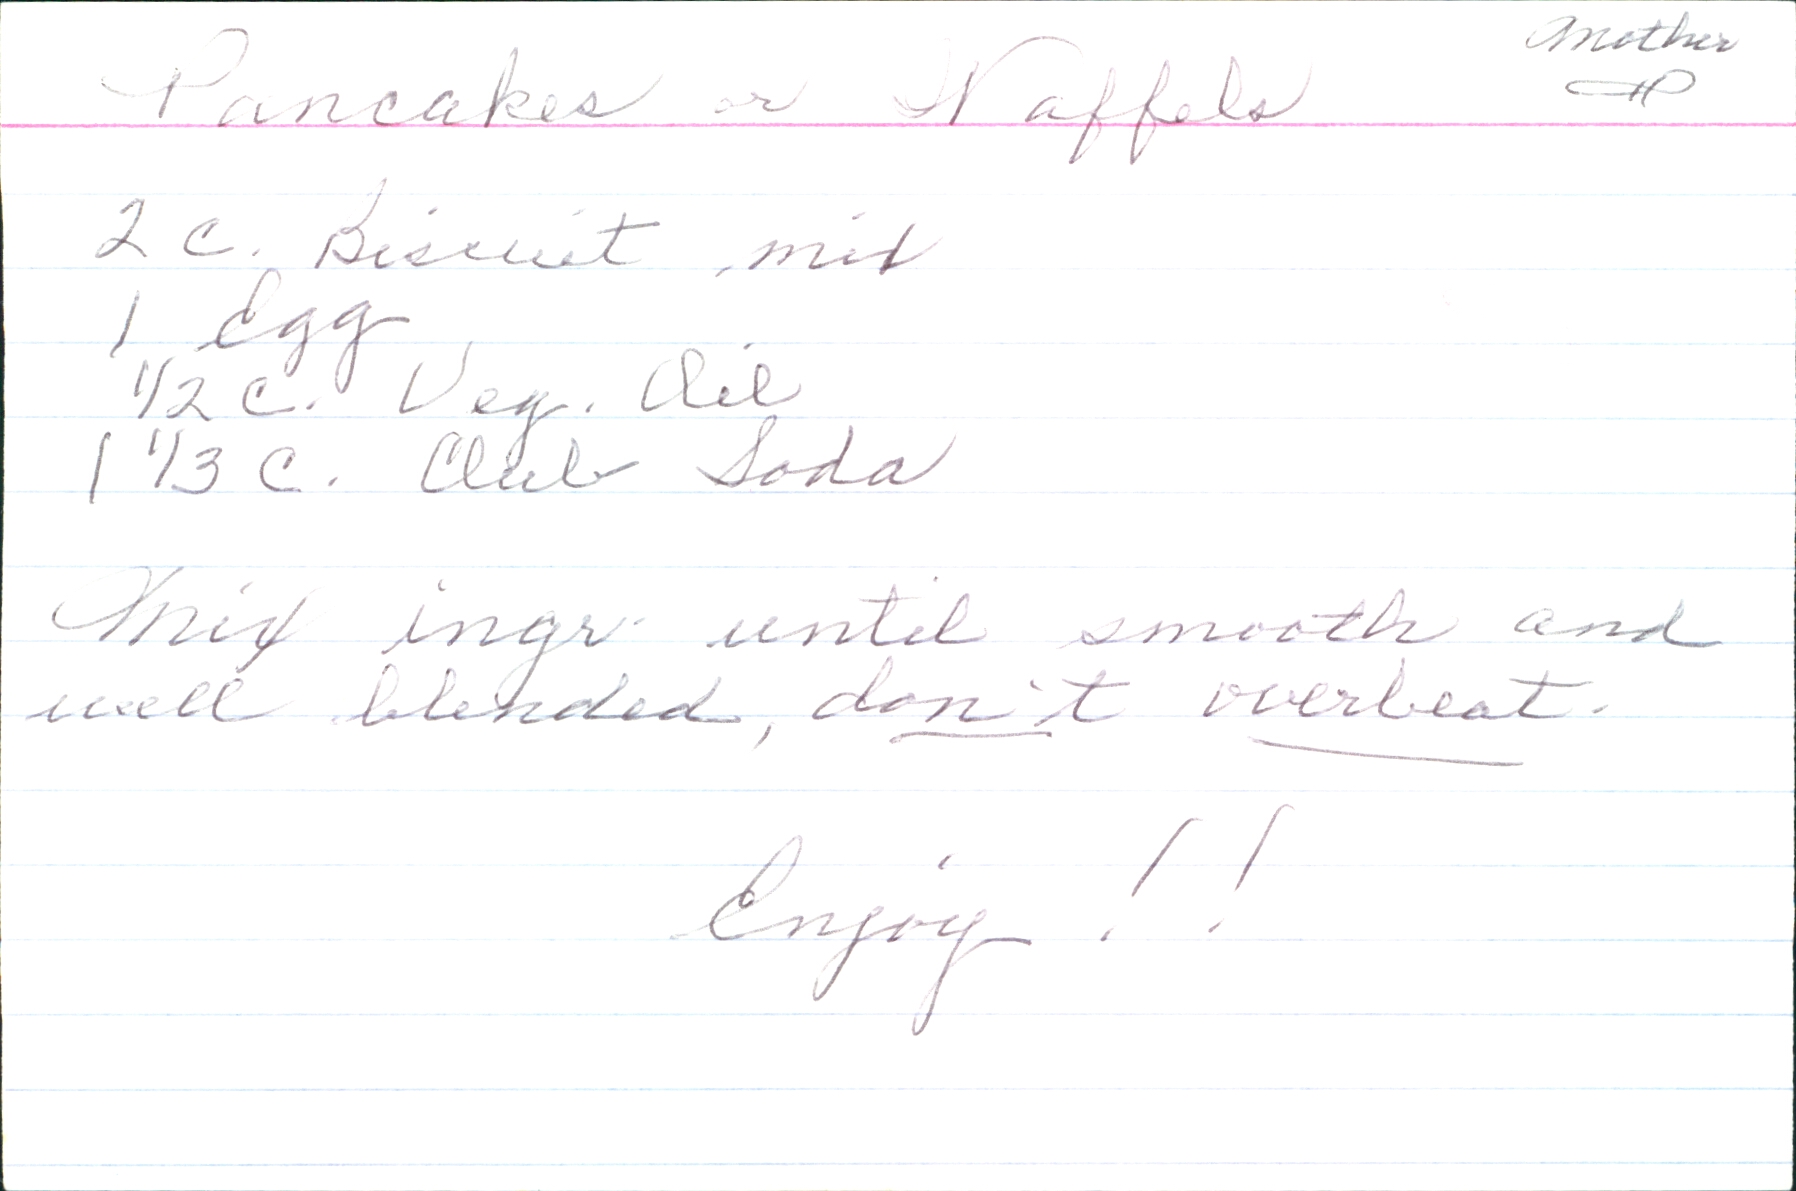 Mother
Pancakes or Waffels
2 c. Biscuit mix
1 Egg
1/2 c. Veg. Oil
1 1/3 c. Club Soda
Mix ingr. until smooth and
well blended, don't overbeat.
Enjoy!!